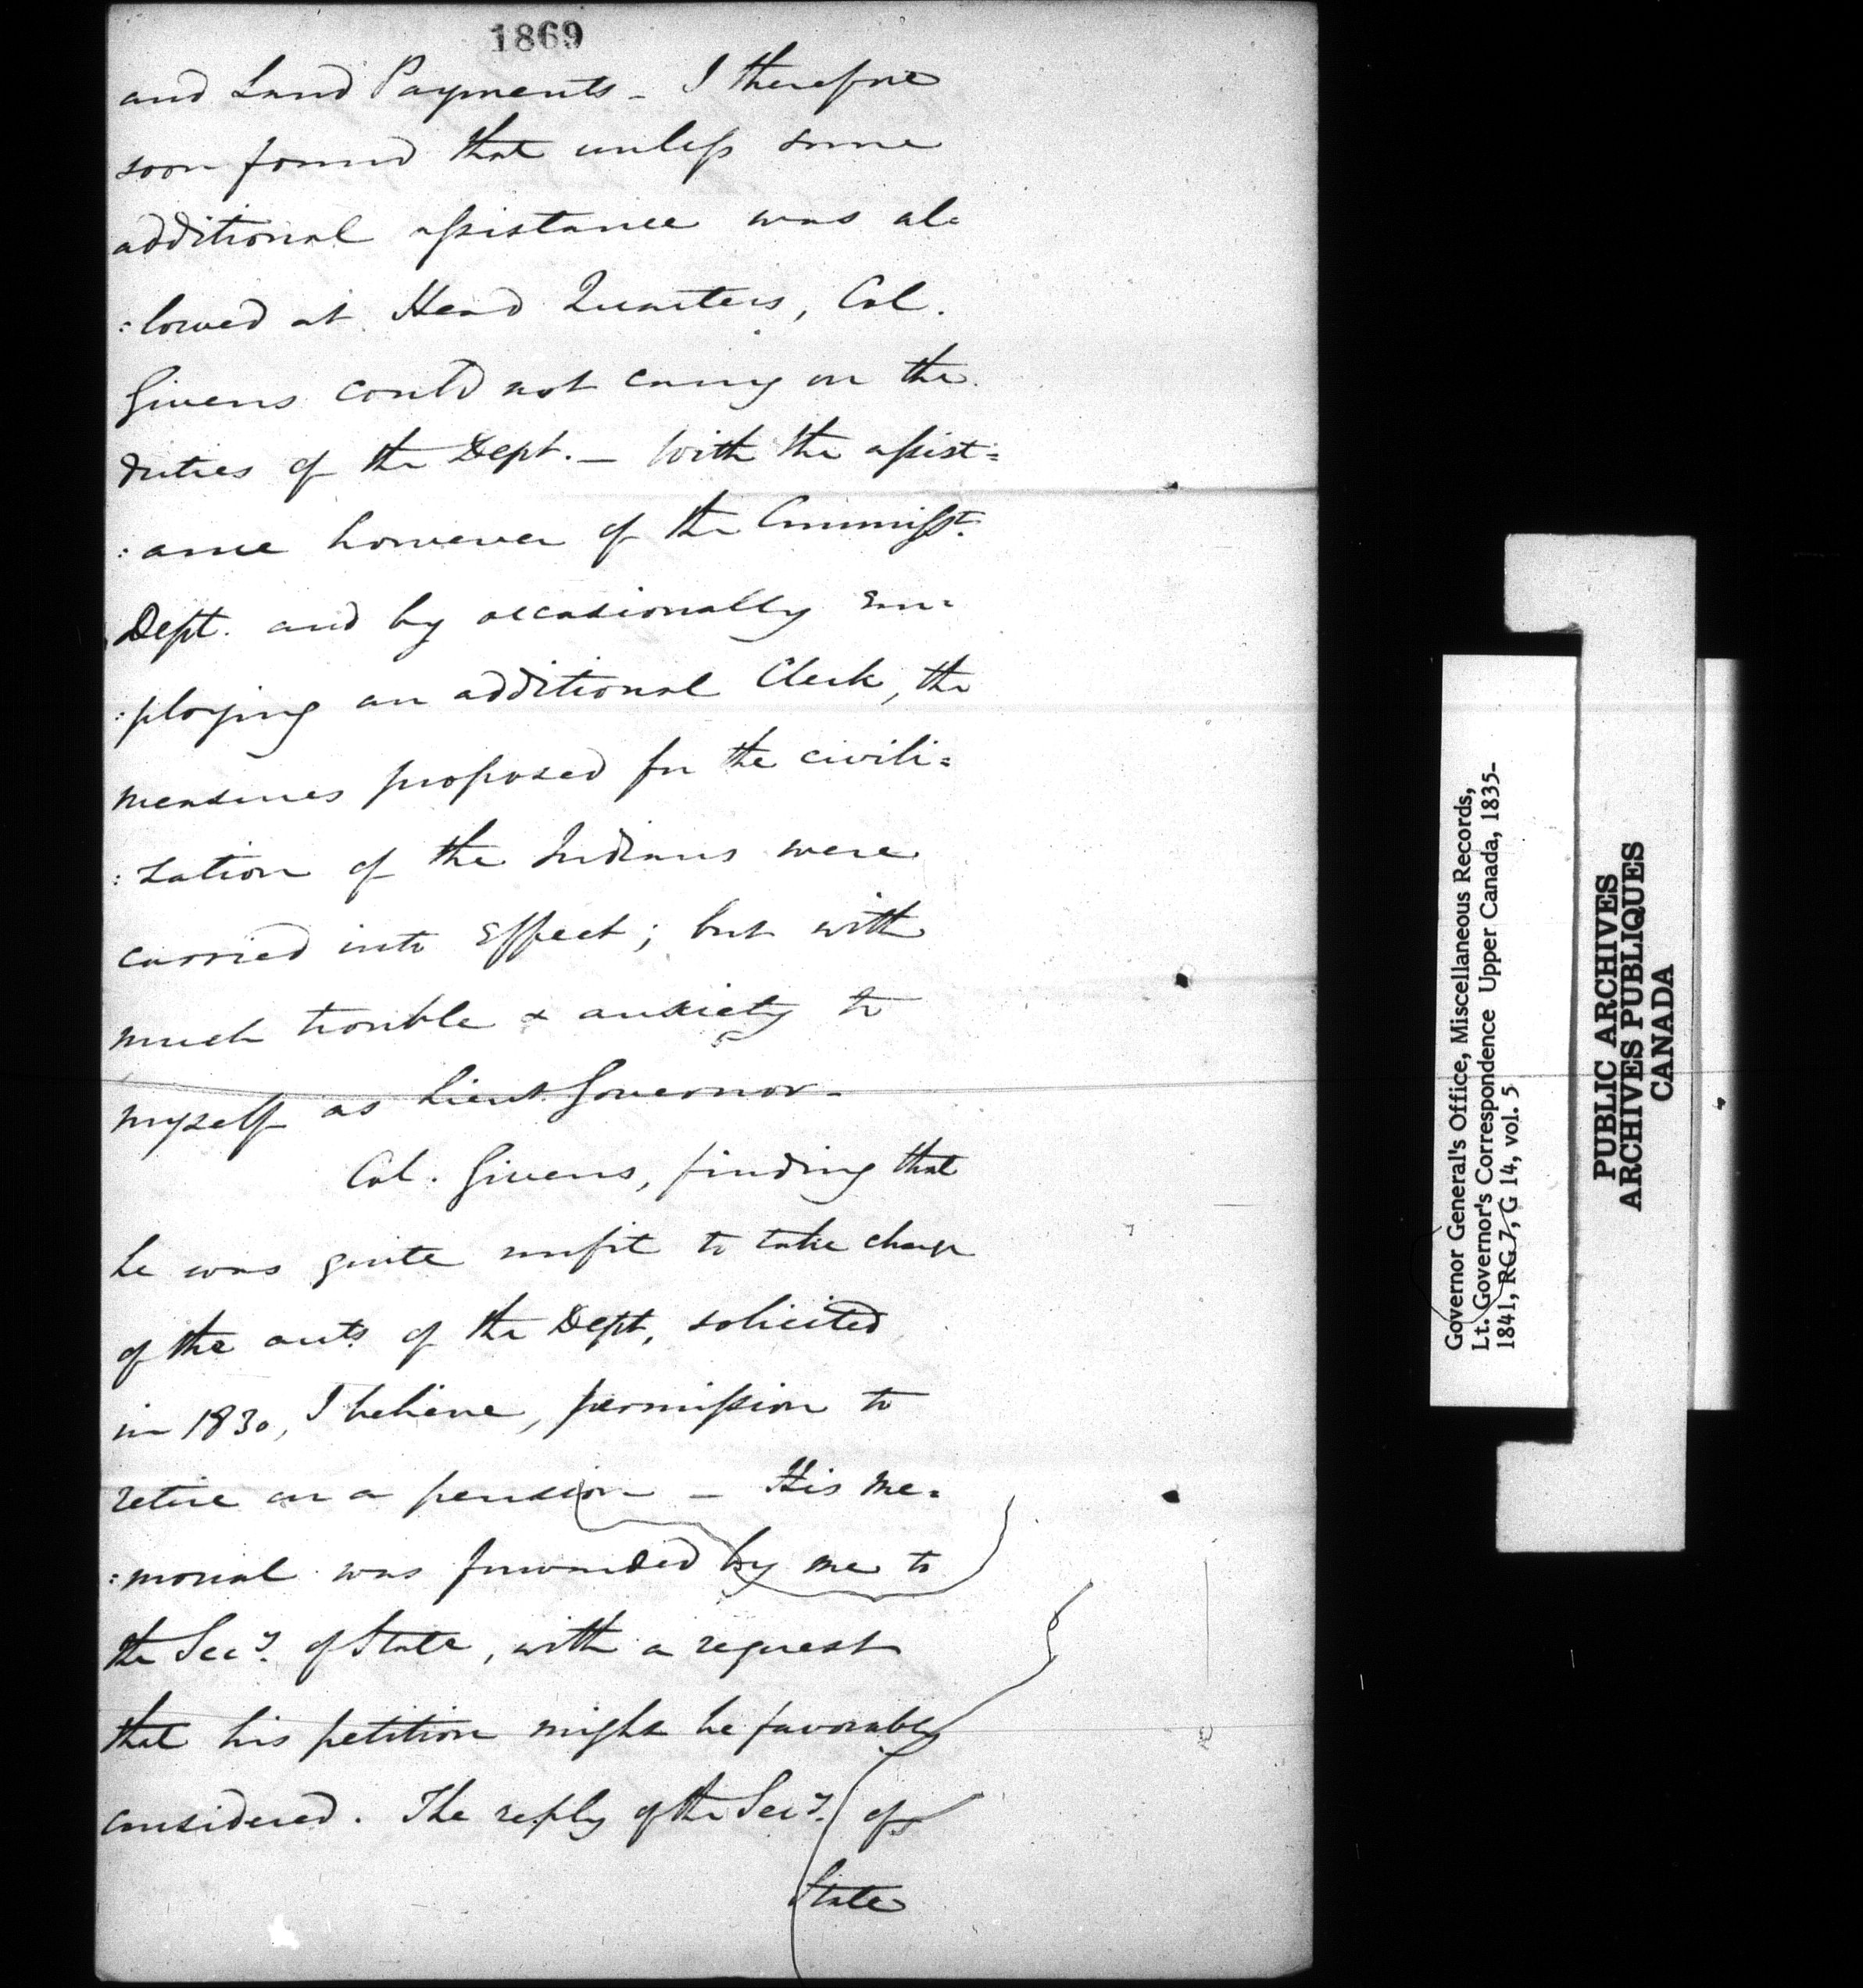 1869
and Land Payments - I therefore
soon found that unless some
additional assistance was al=
:lowed at Head Quarters, Col.
Givens could not carry on the
duties of the Dept. - With the assist=
:ance however of the Commisst.
Dept. and by occasionally em=
:ploying an additional Clerk, the
measures proposed for the civili=
:zation of the Indians were
carried into effect; but with
much trouble & anxiety to
myself as Lieut. Governor -
Col. Givens, finding that
he was quite unfit to take charge
of the accts of the Dept, solicited
in 1830, I believe, permission to
retire on a pension - His me=
:morial was forwarded by me to
the Secy. of State, with a request
that his petition might be favorably
considered. The reply of the Secy. of
State
Governor General's Office, Miscellaneous Records,
Lt. Governor's Correspondence Upper Canada, 1835-
1841, RG 7, G 14, vol. 5
PUBLIC ARCHIVES
ARCHIVES PUBLIQUES
CANADA